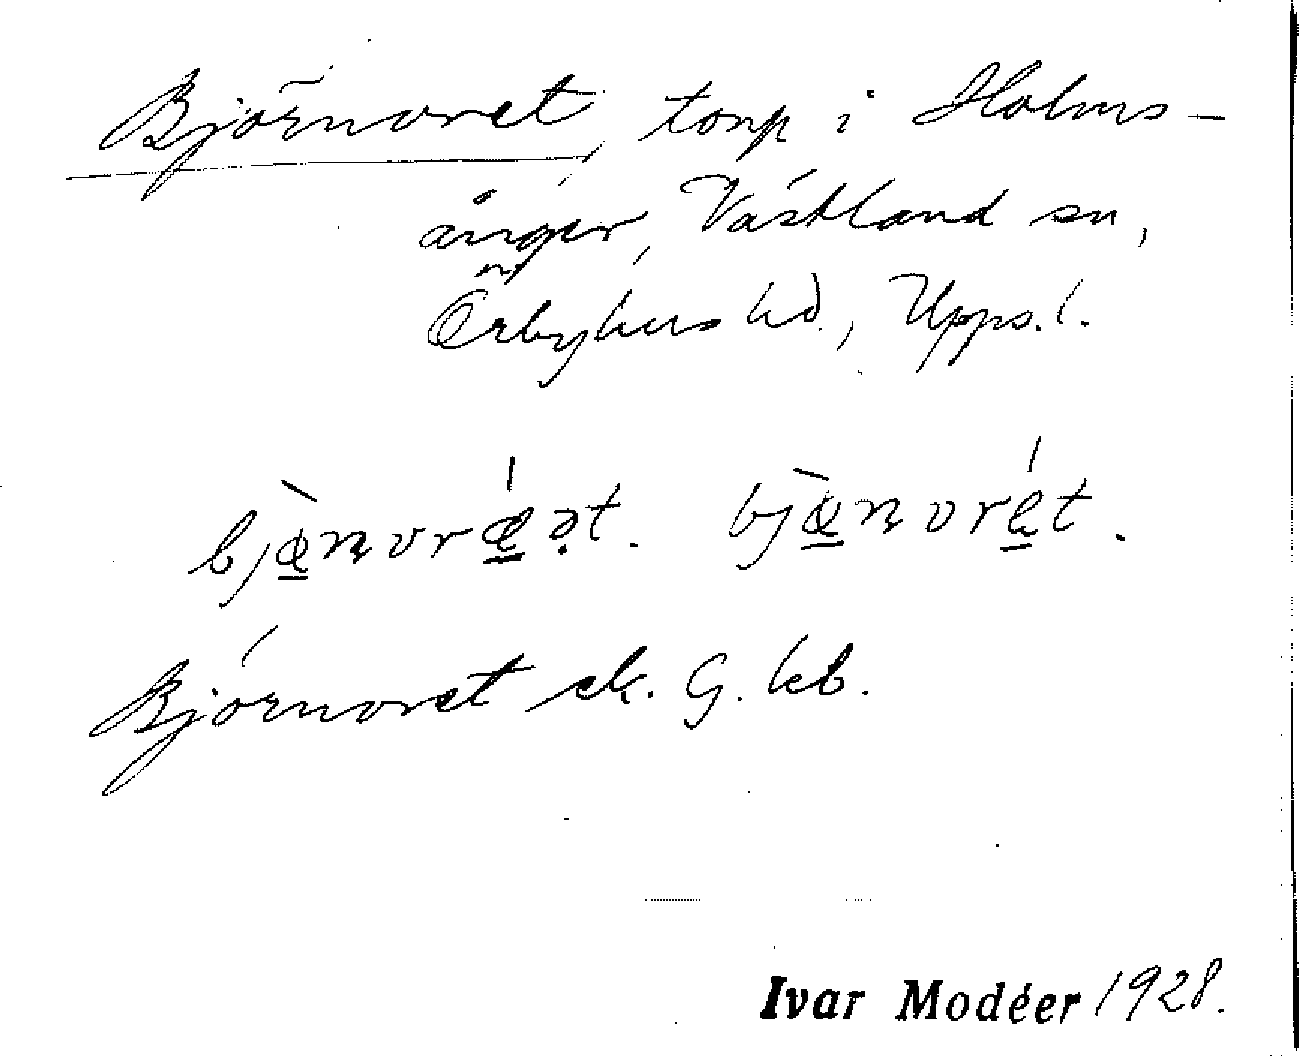 Björnvret, torp i Holms-
ånger, Västland sn,
Örbyhus hd., Upps. l.
bjö̀nvrǽət. bjö̀nvrét.
Björnvret ek. G. kb.
Ivar Modéer 1928.